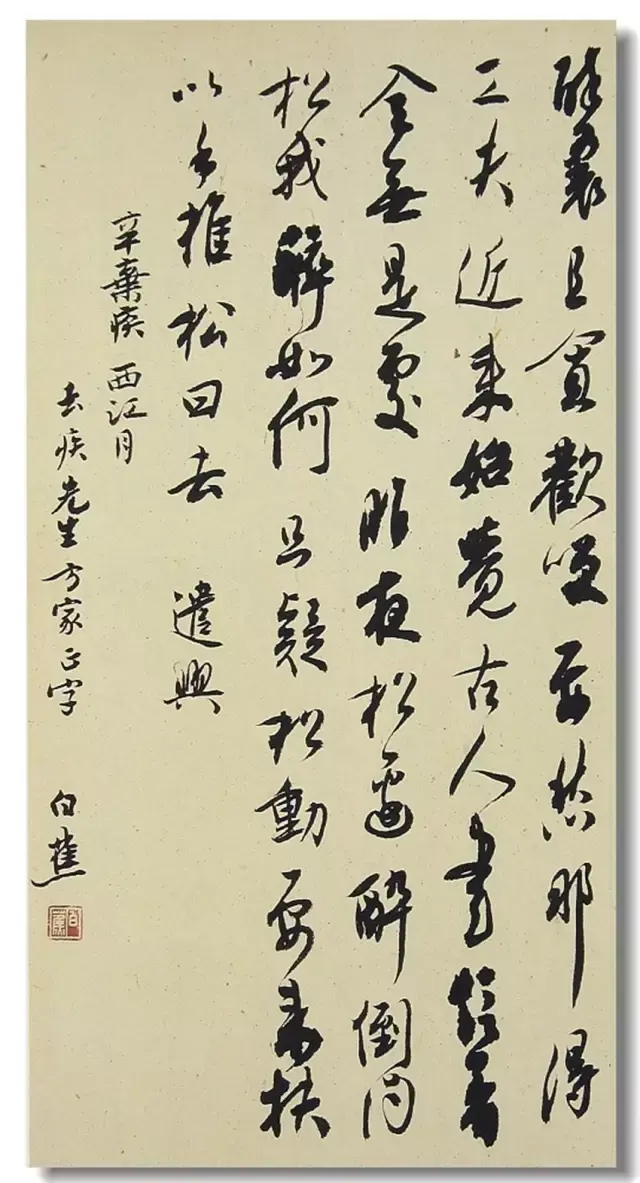 醉裏且貪歡咲要愁那得
工夫近來始覺古人書信著
全無是處昨夜松邊醉倒問
松我醉如何只疑松動要來扶
以手推松曰去 遣興
辛棄疾 西江月
去疾先生方家正字 白蕉
白蕉